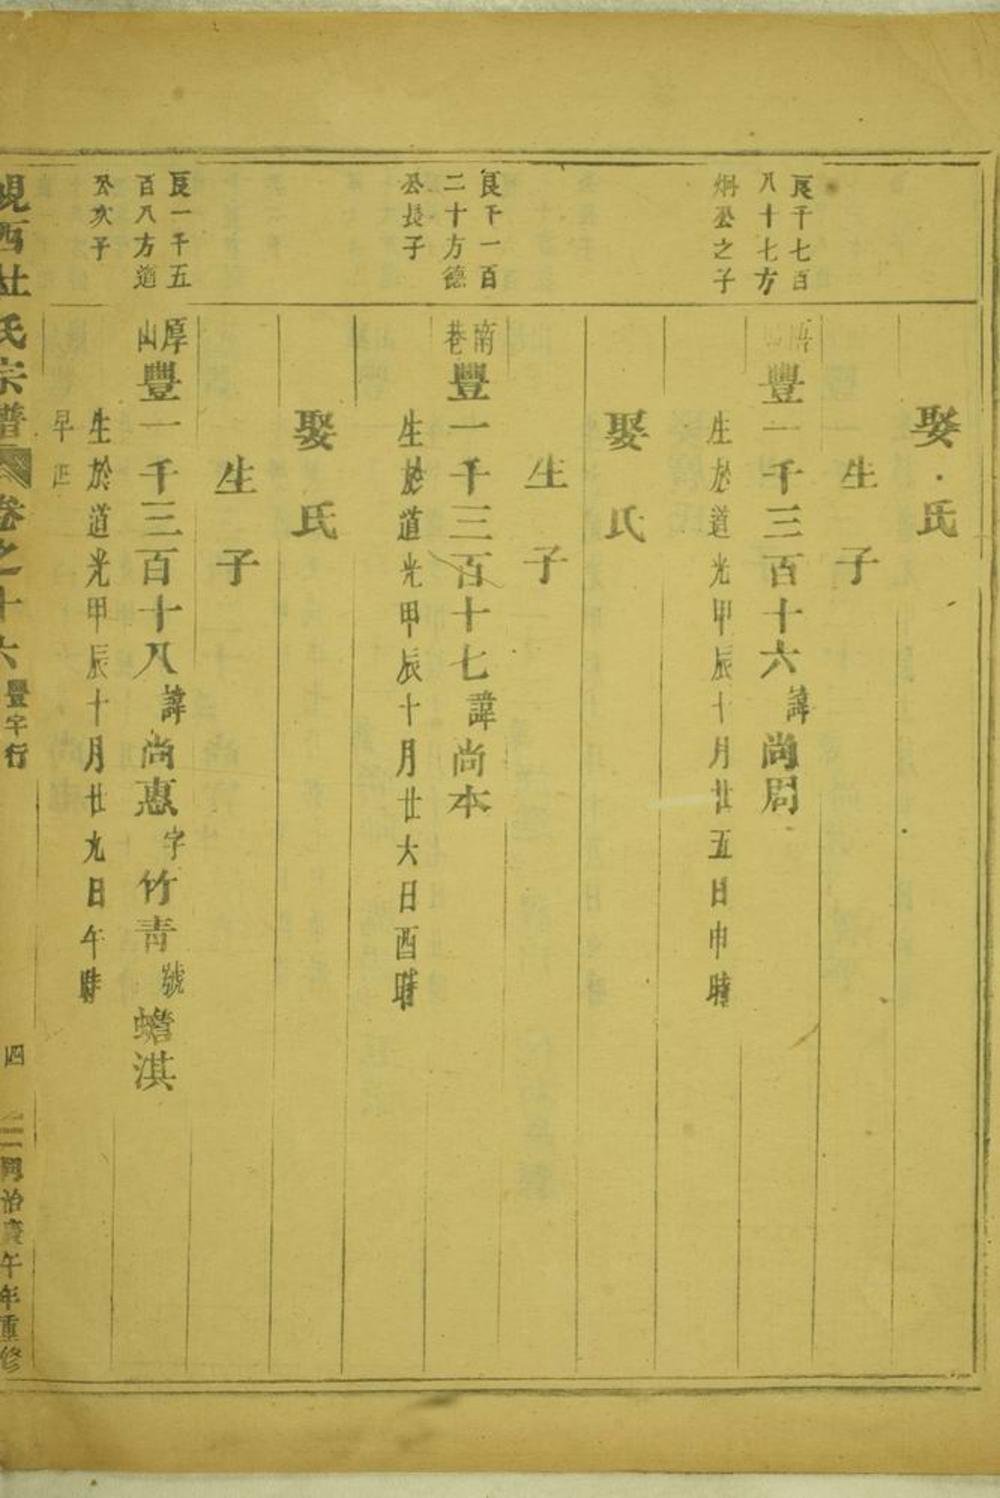 娶氏
生子
良千七百
八十七方
炯公之子
豐一千三百十六諱尚周
生於道光甲辰十月廿五日申時
娶氏
生子
良千一百
二十方德
公長子
南巷豐一千三百十七諱尚本
生於道光甲辰十月廿六日酉時
娶氏
生子
良一千五
百八方道
公次子
厚山豐一千三百十八諱尚惠字竹青號蟾淇
生於道光甲辰十月廿九日午時
早
峴西杜氏宗譜 卷之十六 豐字行 四 同治庚午年重修